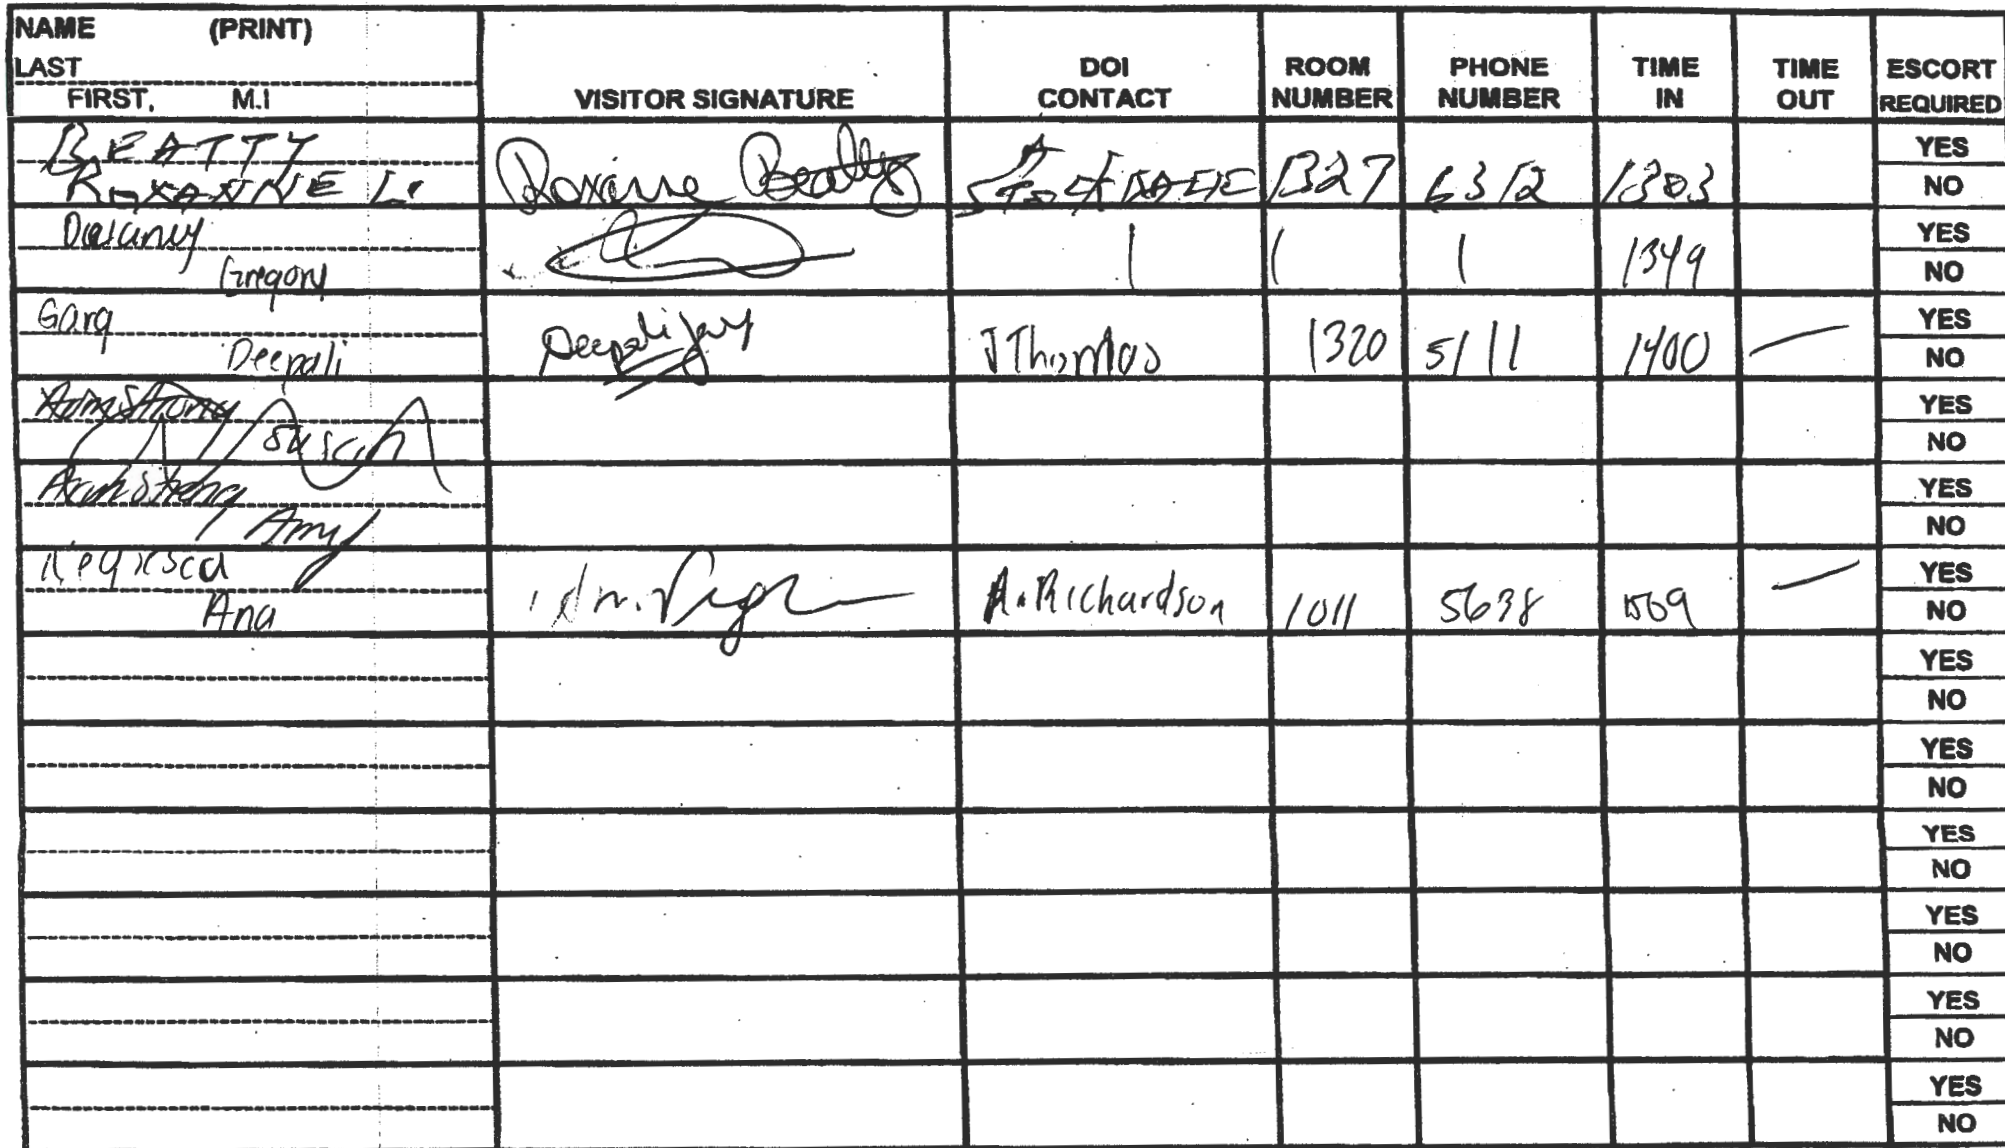 NAME (PRINT)
LAST
FIRST, M.I
VISITOR SIGNATURE
DOI CONTACT
ROOM NUMBER
PHONE NUMBER
TIME IN
TIME OUT
ESCORT REQUIRED
BEATTY
ROXANNE L. Roxanne Beatty 1327 6312 1303
YES
NO
Gregory 1349
YES
NO
Garg
Deepali J Thomas 1320 5111 1400 —
YES
NO
Armstrong
Susan
YES
NO
Armstrong
Amy
YES
NO
Ana A. Richardson 1011 5638 1509 —
YES
NO
YES
NO
YES
NO
YES
NO
YES
NO
YES
NO
YES
NO